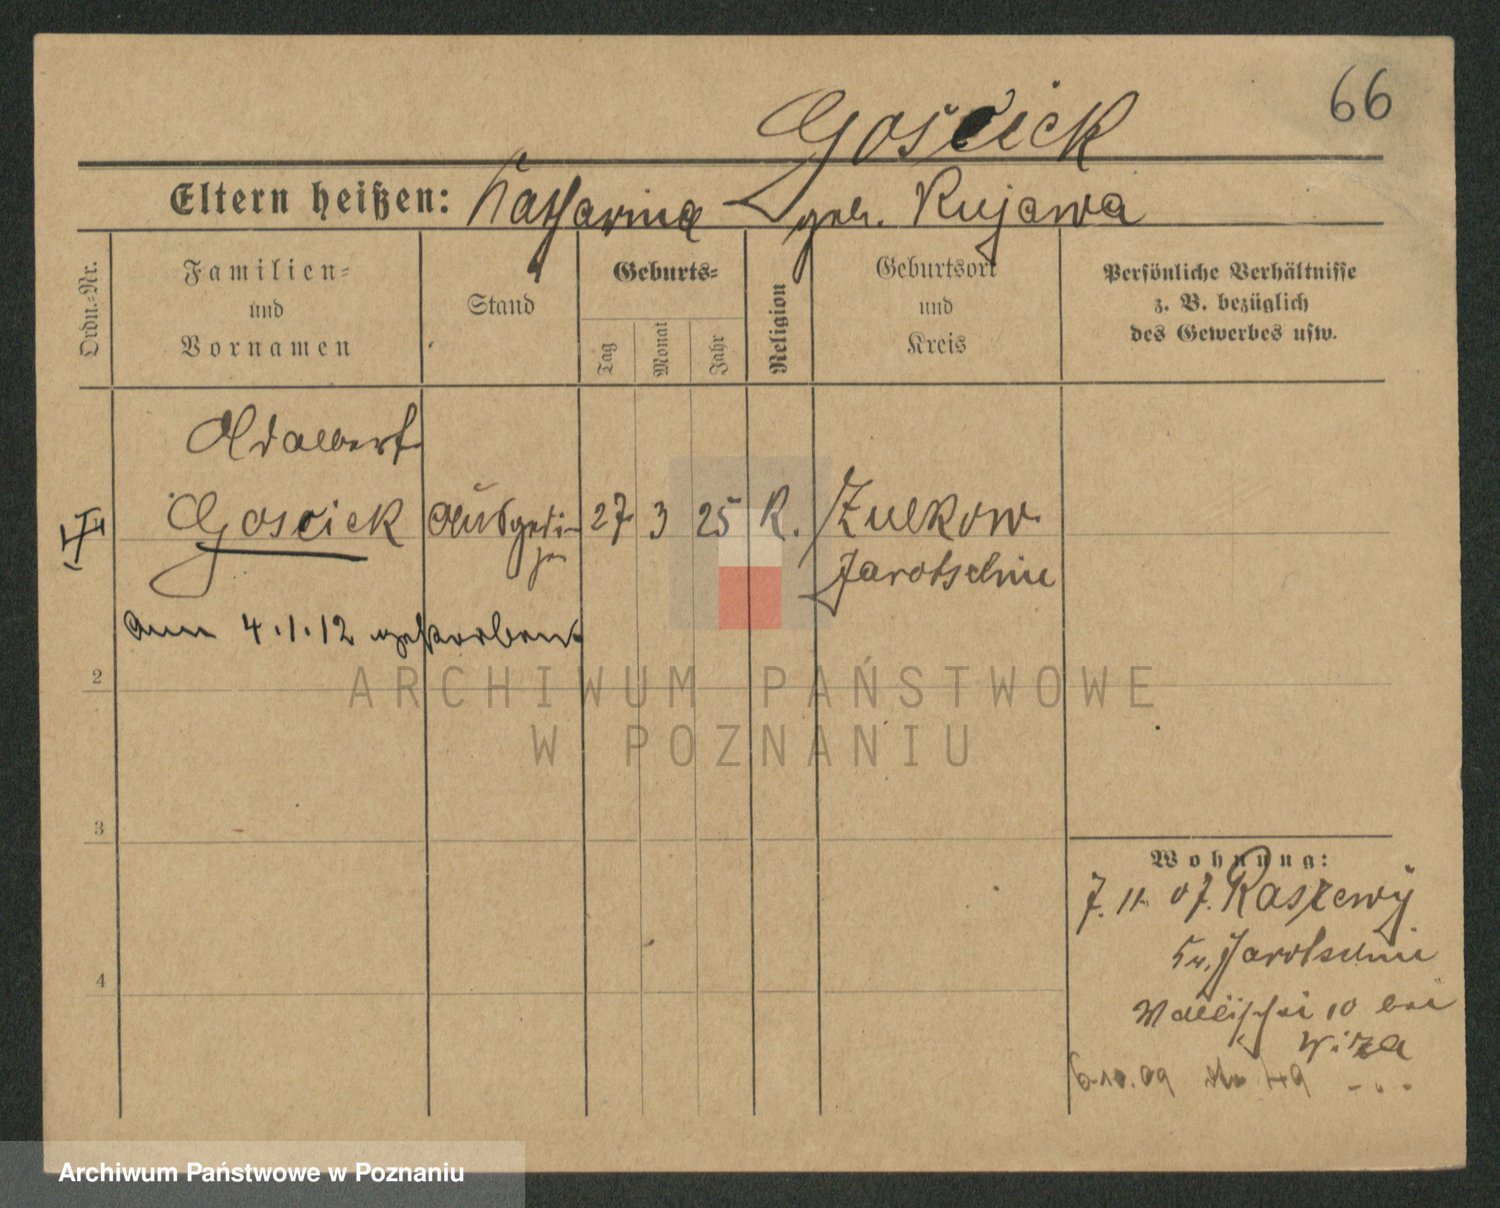 66
Gościck
Eltern heißen: Katharina geb. Kujawa
Ordn.-Nr.
Familien-
und
Vornamen
Stand
Geburts-
Tag
Monat
Jahr
Religion
Geburtsort
und
Kreis
Persönliche Verhältnisse
z. B. bezüglich
des Gewerbes usw.
Adalbert
Goscick Ausgedin- 27 3 25 K. Zulkow
ger Jarotschin
am 4.1.12 gestorben
2
3
4
Wohnung:
7. 11. 07. Raszewy
Kr. Jarotschin
Wallischei 10 bei
Wiza
6.10.09 49
ARCHIWUM PAŃSTWOWE
W POZNANIU
Archiwum Państwowe w Poznaniu